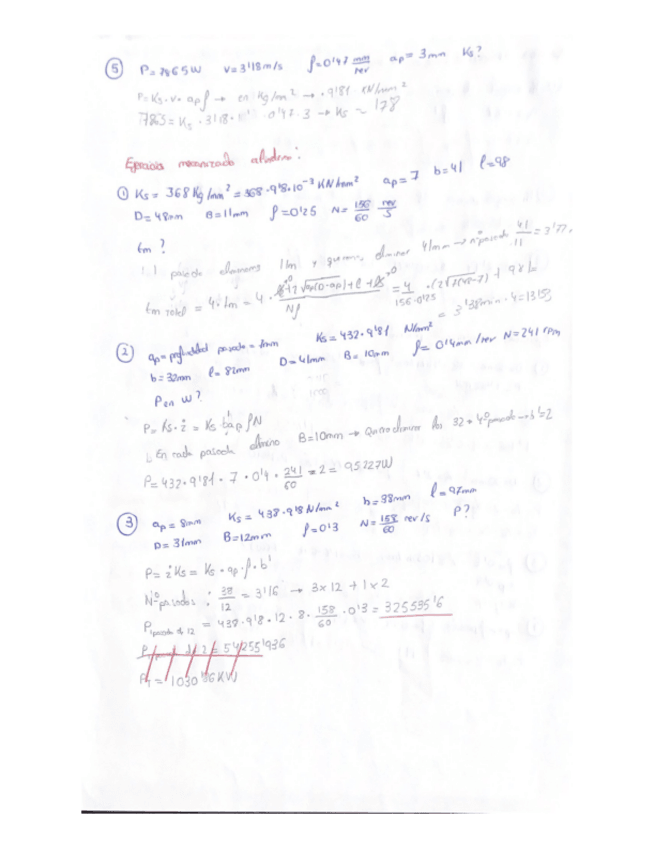 ⑤ P=7865W v=3'18m/s f=0'47 mm/rev ap=3mm Ks?
P=Ks·v·ap f → en Kg/mm² → ·9'81 KN/mm²
7865=Ks·3'18· ·0'47·3 → Ks ~ 178
Ejercicios mecanizado
① Ks = 368 Kg/mm² = 368·9'8·10⁻³ KN/mm² ap=7 b=41 l=98
D=48mm B=11mm f=0'25 N= 156/60 rev/s
tm?
1 pasada eliminamos 11m y quiero eliminar 41mm → nºpasada 41/11 = 3'77
tm total = 4·tm = 4·
= 3'38min·4=13'53
② ap=profundidad pasada = mm Ks=432·9'81 N/mm² f= 0'4mm/rev N=241 rpm
b=32mm l=82mm D=41mm B=10mm
P en W?
P= Ks·ż = Ks b ap f N
↳ En cada pasada elimino B=10mm → Quiero eliminar los 32 → 4º pasada → b'=2
P=432·9'81·7·0'4· 241/60 ·2 = 95227W
③ ap=8mm Ks= 438·9'8 N/mm² b=38mm l=97mm
D=31mm B=12mm f=0'3 N= 158/60 rev/s P?
P= ż Ks = Ks·ap·f·b'
Nº pasadas : 38/12 = 3'16 → 3x12 + 1x2
P1pasada de 12 = 438·9'8·12·8· 158/60 ·0'3 = 325535'6
P de 2 = 54255'936
PT = 1030'86KW